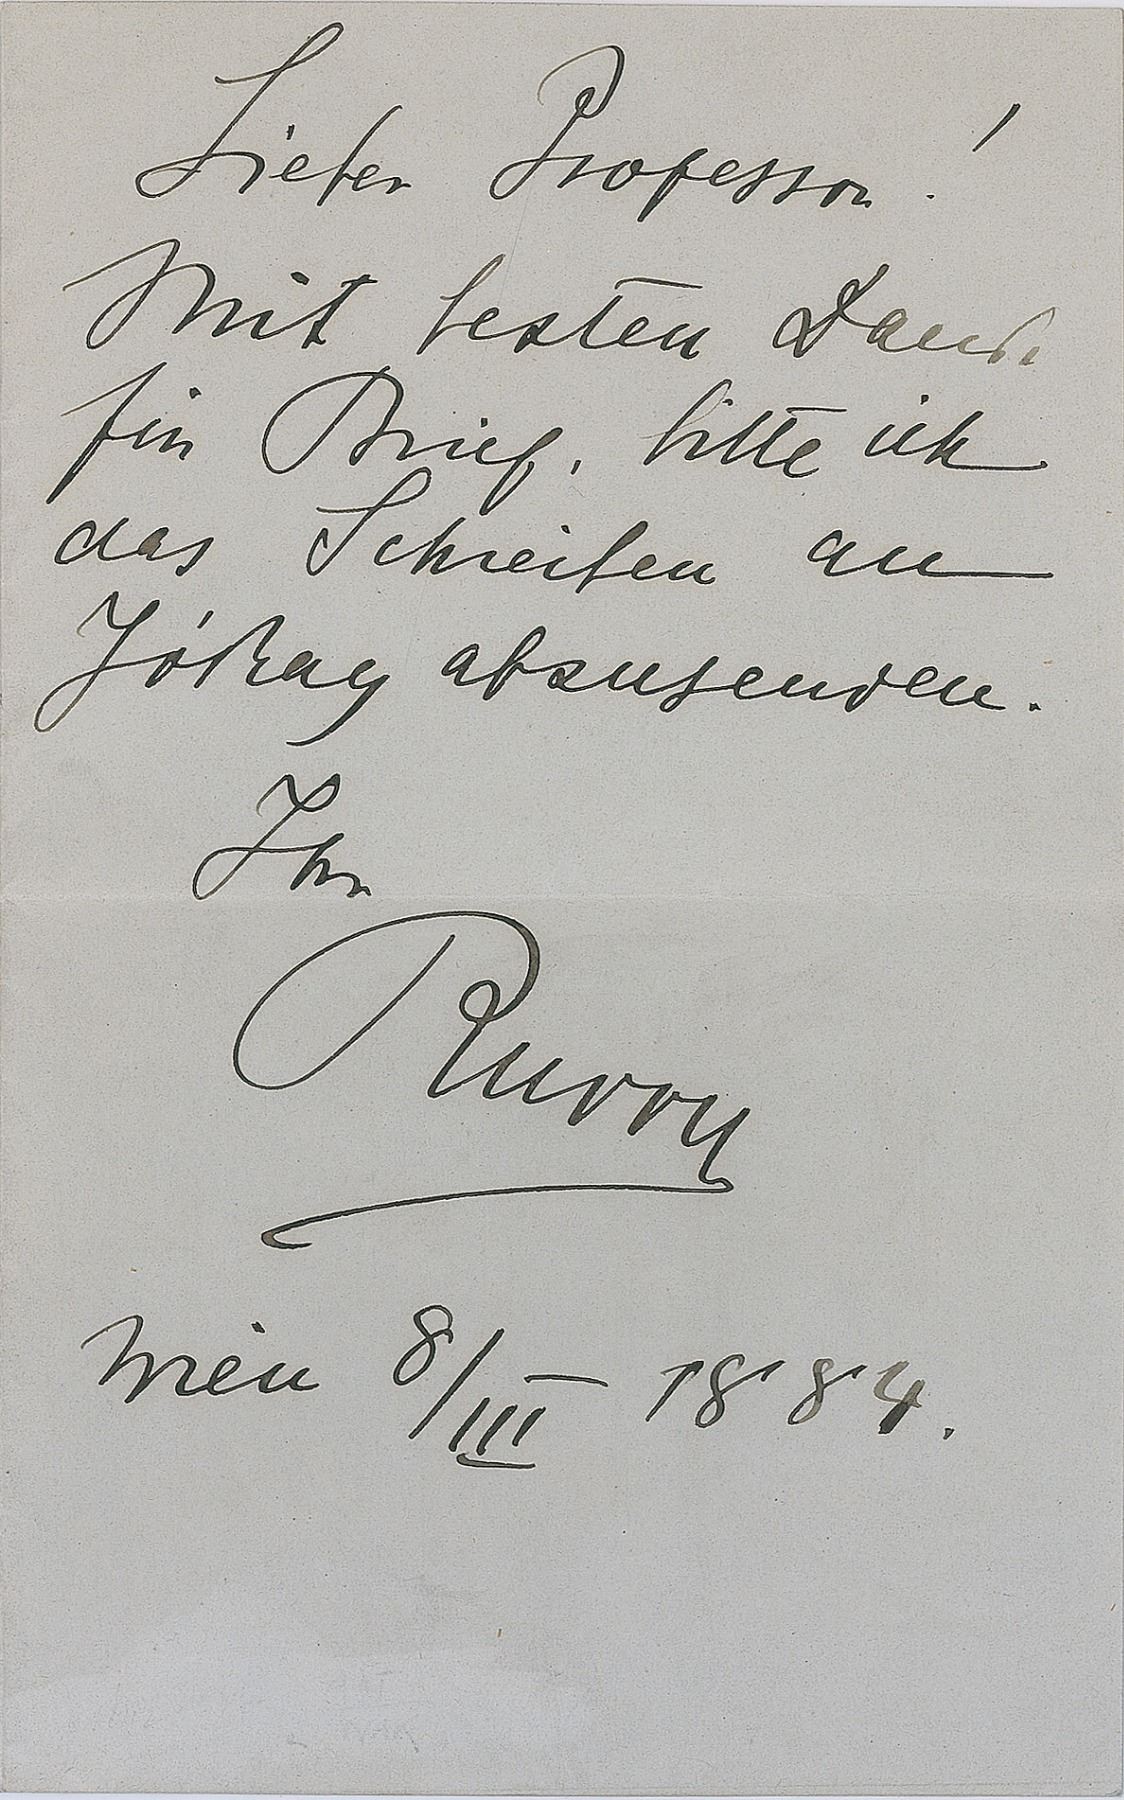 Lieber Professor!
Mit besten Dank
für Brief, bitte ich
das Schreiben an
Jókay abzusenden.
Ihr
Rudolf
Wien 8/III 1884.